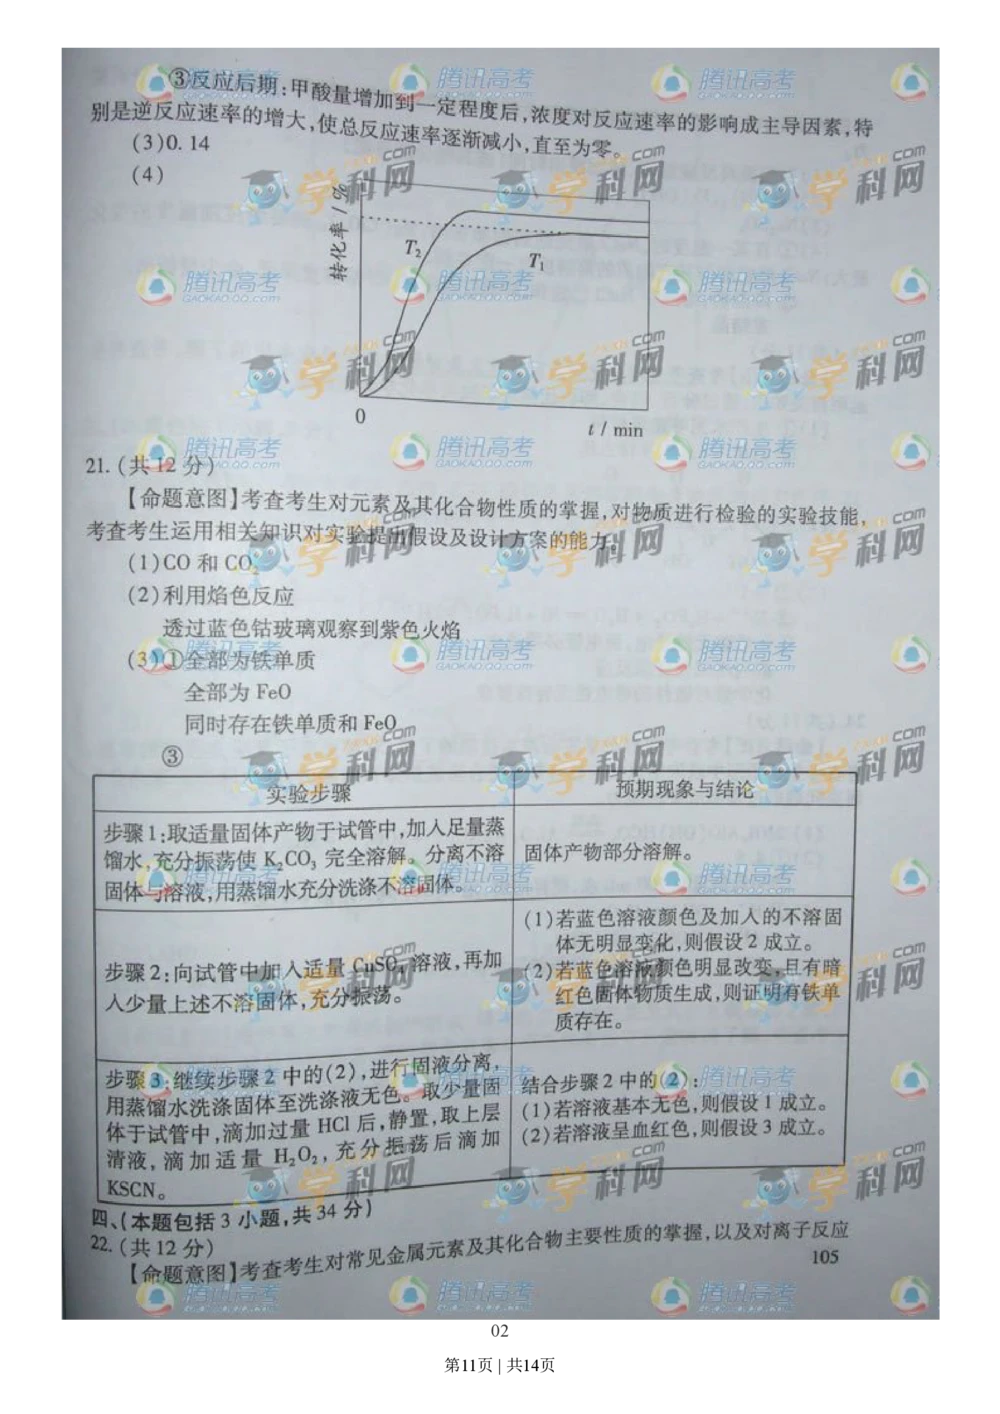 ③反应后期:甲酸量增加到一定程度后,浓度对反应速率的影响成主导因素,特
别是逆反应速率的增大,使总反应速率逐渐减小,直至为零。
(3)0.14
(4)
转化率 / %
T₂
T₁
0
t / min
21. (共 12 分)
【命题意图】考查考生对元素及其化合物性质的掌握,对物质进行检验的实验技能,
考查考生运用相关知识对实验提出假设及设计方案的能力。
(1)CO 和 CO₂
(2)利用焰色反应
透过蓝色钴玻璃观察到紫色火焰
(3)①全部为铁单质
全部为 FeO
同时存在铁单质和 FeO
③
实验步骤
预期现象与结论
步骤 1:取适量固体产物于试管中,加入足量蒸
馏水,充分振荡使 K₂CO₃ 完全溶解。分离不溶
固体与溶液,用蒸馏水充分洗涤不溶固体。
固体产物部分溶解。
步骤 2:向试管中加入适量 CuSO₄ 溶液,再加
入少量上述不溶固体,充分振荡。
(1)若蓝色溶液颜色及加入的不溶固
体无明显变化,则假设 2 成立。
(2)若蓝色溶液颜色明显改变,且有暗
红色固体物质生成,则证明有铁单
质存在。
步骤 3:继续步骤 2 中的(2),进行固液分离,
用蒸馏水洗涤固体至洗涤液无色。取少量固
体于试管中,滴加过量 HCl 后,静置,取上层
清液,滴加适量 H₂O₂,充分振荡后滴加
KSCN。
结合步骤 2 中的(2):
(1)若溶液基本无色,则假设 1 成立。
(2)若溶液呈血红色,则假设 3 成立。
四、(本题包括 3 小题,共 34 分)
22. (共 12 分)
【命题意图】考查考生对常见金属元素及其化合物主要性质的掌握,以及对离子反应
105
腾讯高考
GAOKAO.QQ.COM
学科网
ZXXK.com
02
第11页 | 共14页